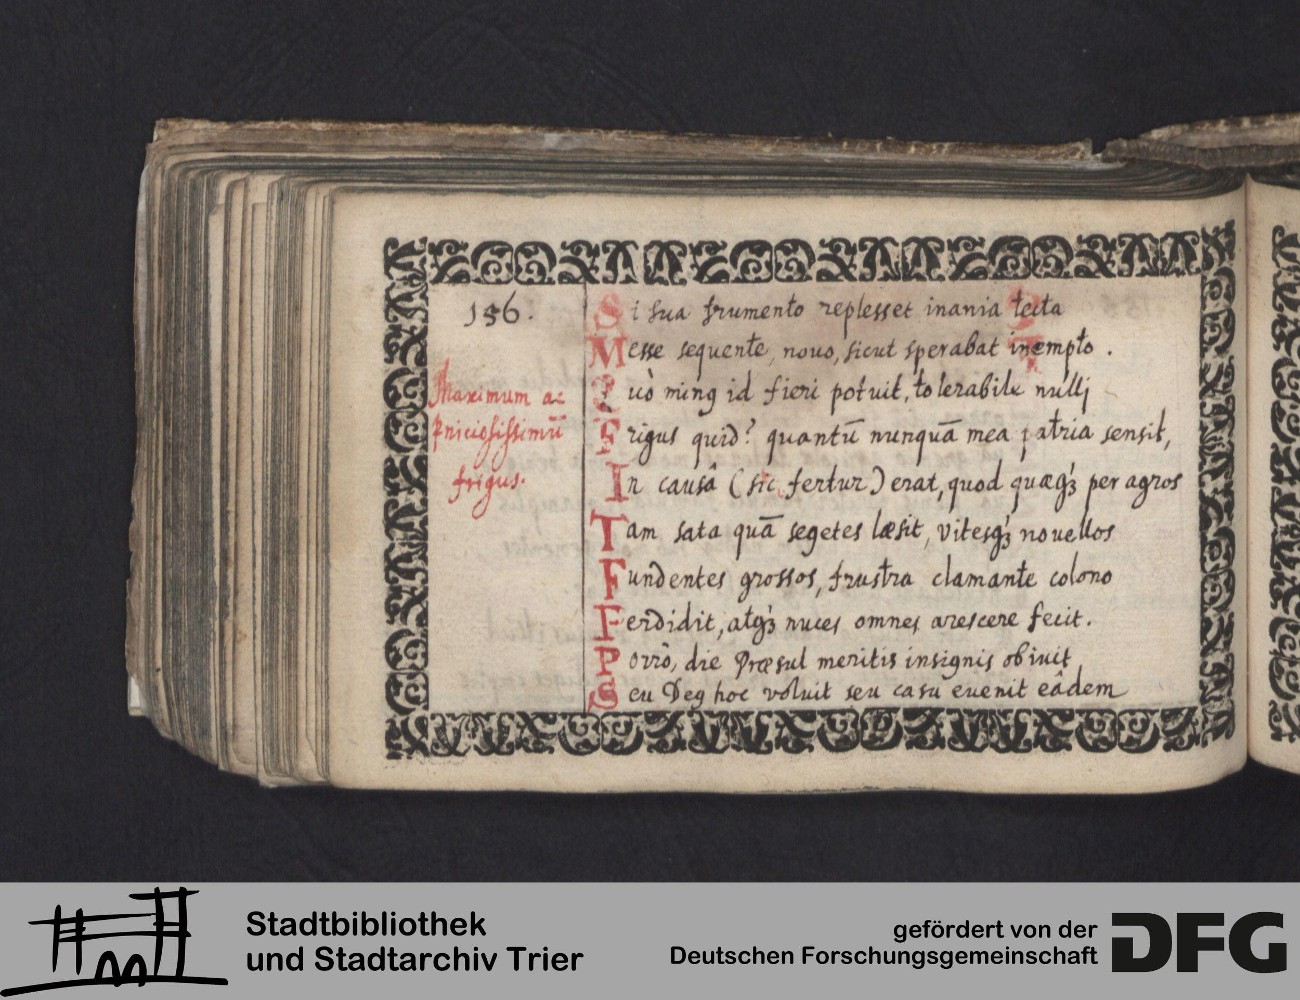 156.
Maximum ac
pniciosissimū
frigus.
Si sua frumento replesset inania tecta
Messe sequente, nouo, sicut sperabat inempto.
Quò ming id fieri potuit, tolerabile nullj
Frigus quid? quantū nunquā mea patria sensit,
In causâ (sic fertur) erat, quod quæq́ʒ per agros
Tam sata quā segetes læsit, vitesq́ʒ nouellos
Fundentes grossos, frustra clamante colono
Perdidit, atq́ʒ nuces omnes arescere fecit.
Porrò, die Præsul meritis insignis obiuit,
Seu Deg hoc voluit seu casu euenit eâdem
Stadtbibliothek
und Stadtarchiv Trier
gefördert von der
Deutschen Forschungsgemeinschaft
DFG